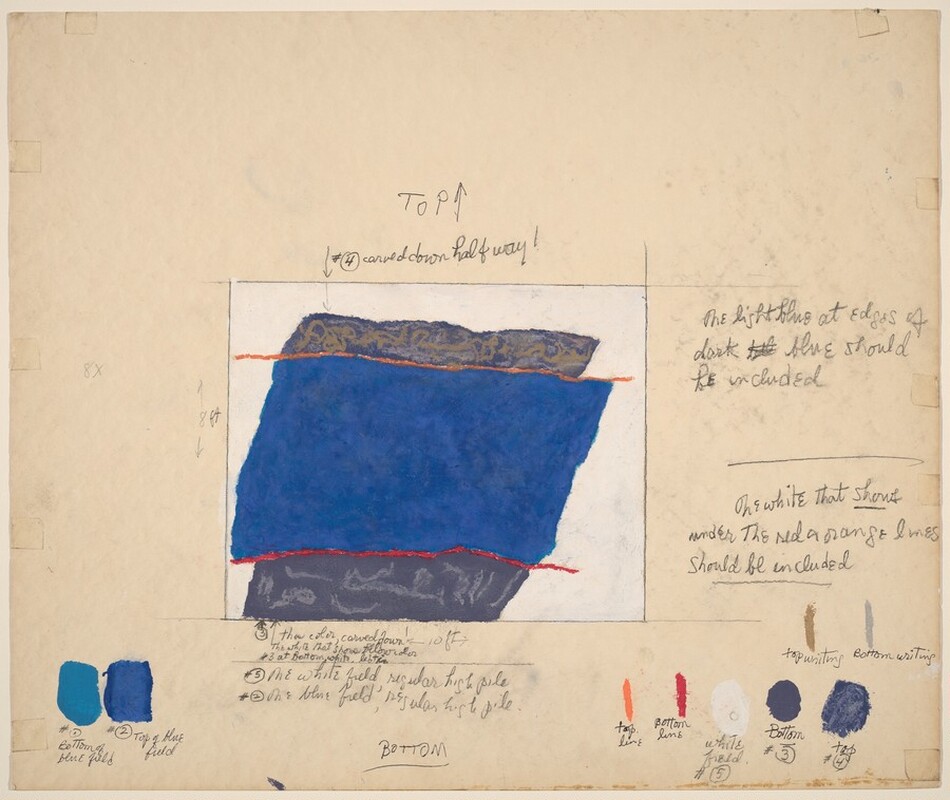 TOP↑
#④ carved down half way!
The light blue at edges of
dark blue should
be included
8X
8 ft
The white that shows
under The red & orange lines
should be included
③ this color, carved down! ← 10 ft →
The white that shows
#3 at Bottom
#⑤ The white field regular high pile
#② The blue field, regular high pile.
BOTTOM
top writing
Bottom writing
#①
Bottom of
blue field
#② Top of blue
field
top.
line
Bottom
line
white
field.
#⑤
Bottom
#③
top
#④